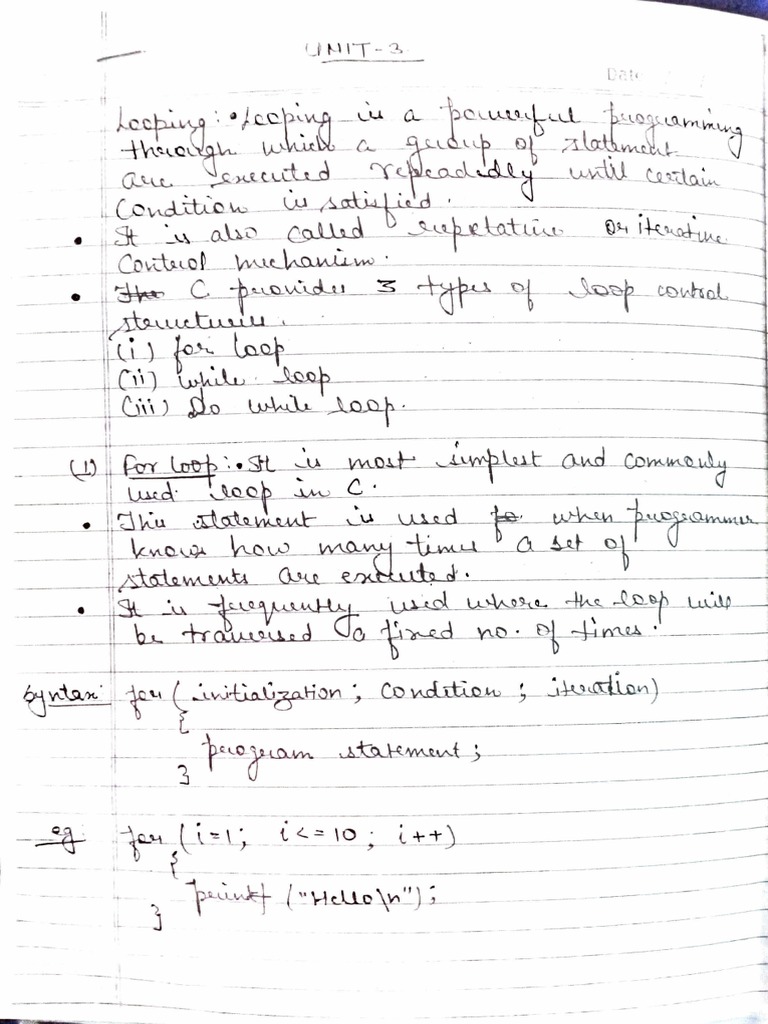 UNIT-3
Date
Looping: • Looping is a powerful programming
through which a group of statement
are executed repeadedly until certain
condition is satisfied.
• It is also called repetative or iterative
Control mechanism.
• The C provides 3 types of loop control
structures.
(i) for loop
(ii) while loop
(iii) Do while loop.
(1) For loop: • It is most simplest and commonly
used loop in C.
• This statement is used fo when programmer
knows how many times a set of
statements are executed.
• It is frequently used where the loop will
be traversed a fixed no. of times.
Syntax: for (initialization; condition; iteration)
{
program statement;
}
eg for (i=1; i<=10; i++)
{
printf ("Hello\n");
}